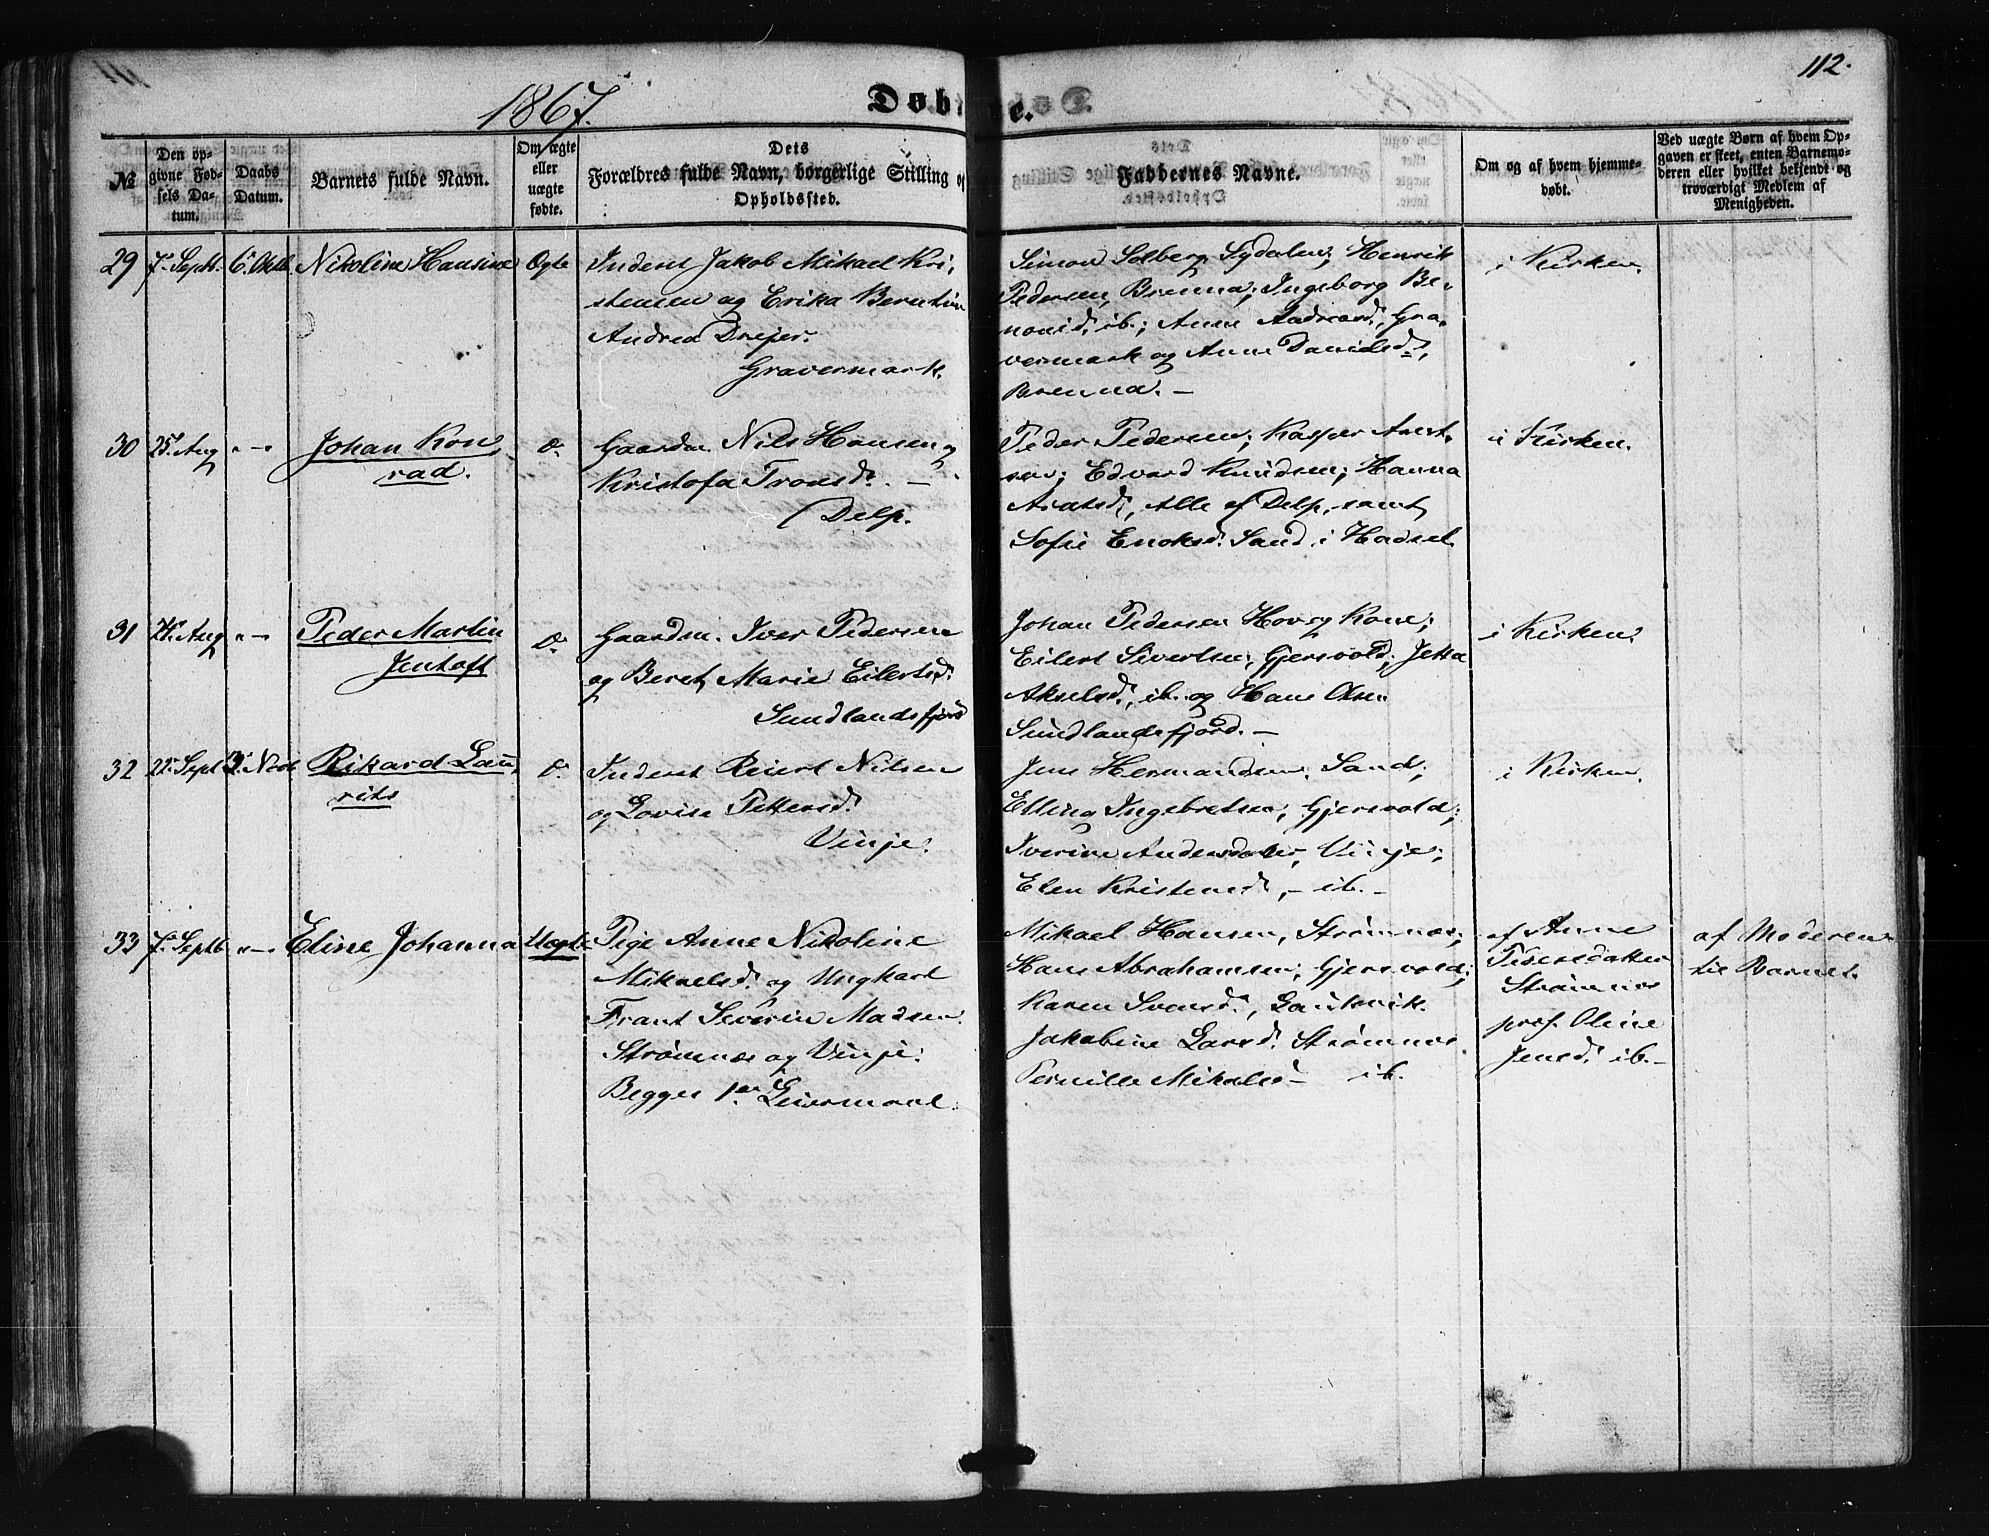 112.
1867.
Døbte.
№
Den opgivne Fødsels Datum.
Daabs Datum.
Barnets fulde Navn.
Om ægte eller uægte fødte.
Dets Forældres fulde Navn, borgerlige Stilling og Opholdssted.
Faddernes Navne.
Om og af hvem hjemmedøbt.
Ved uægte Børn af hvem Opgaven er skeet, enten Barnemoderen eller hvilket bekjendt og troværdigt Medlem af Menigheden.
29 7. Sept. 6. Oktb. Nikoline Hansine Ægte
Inderst Jakob Mikael Kri-
stensen og Erika Berntine
Andrea Drejer.
Gravermark.
Simon Solberg, Henrik
Pedersen, Brenna; Ingeborg Be-
nonid. ib.; Anne Andreasd., Gra-
vermark og Anne Davidsd.,
Brenna. -
i Kirken.
30 25. Aug "-" Johan Kon-
rad.
Æ.
Gaardm. Nils Hansen og
Kristofa Tronsd. -
Delp.
Peder Pedersen; Kasper Arnt-
sen; Edvard Knudsen; Hanna
Arntsd., Alle af Delp, samt
Sofie Enoksd. Sand i Hadsel
i Kirken.
31 Aug "-" Peder Martin
Jentoft
Æ.
Gaardm. Iver Pedersen
og Beret Marie Eilertsd.
Sundlandsfjord
Johan Pedersen Hov og Kone;
Eilert Sivertsen, Gjersvold; Jetta
Akselsd., ib. og Hans Olsen
Sundlandsfjord. -
i Kirken.
32 22. Sept 3. Novb Rikard Lau-
rits
Æ.
Inderst Reiert Nilsen
og Lovise Pettersd.
Vinje.
Jens Hermandsen, Sand;
Elling Ingebretsen, Gjersvold;
Iverine Andersdatter, Vinje;
Elen Kristensd., - ib. -
i Kirken.
33 7. Septb "-" Eline Johanna Uægte
Pige Anne Nikoline
Mikaelsd. og Ungkarl
Frants Severin Madsen
Strømnes og Vinje.
Begges 1ste Leiermaal.
Mikael Hansen, Strømnes;
Hans Abrahamsen; Gjersvold;
Karen Svensd., Gaukvik.
Jakobine Larsd. Strømnes
Pernille Mikalsd - ib.
af Anne
Pedersdatter
Strømnes
prof. Oline
Jensd. ib. -
af Moderen
til Barnet.